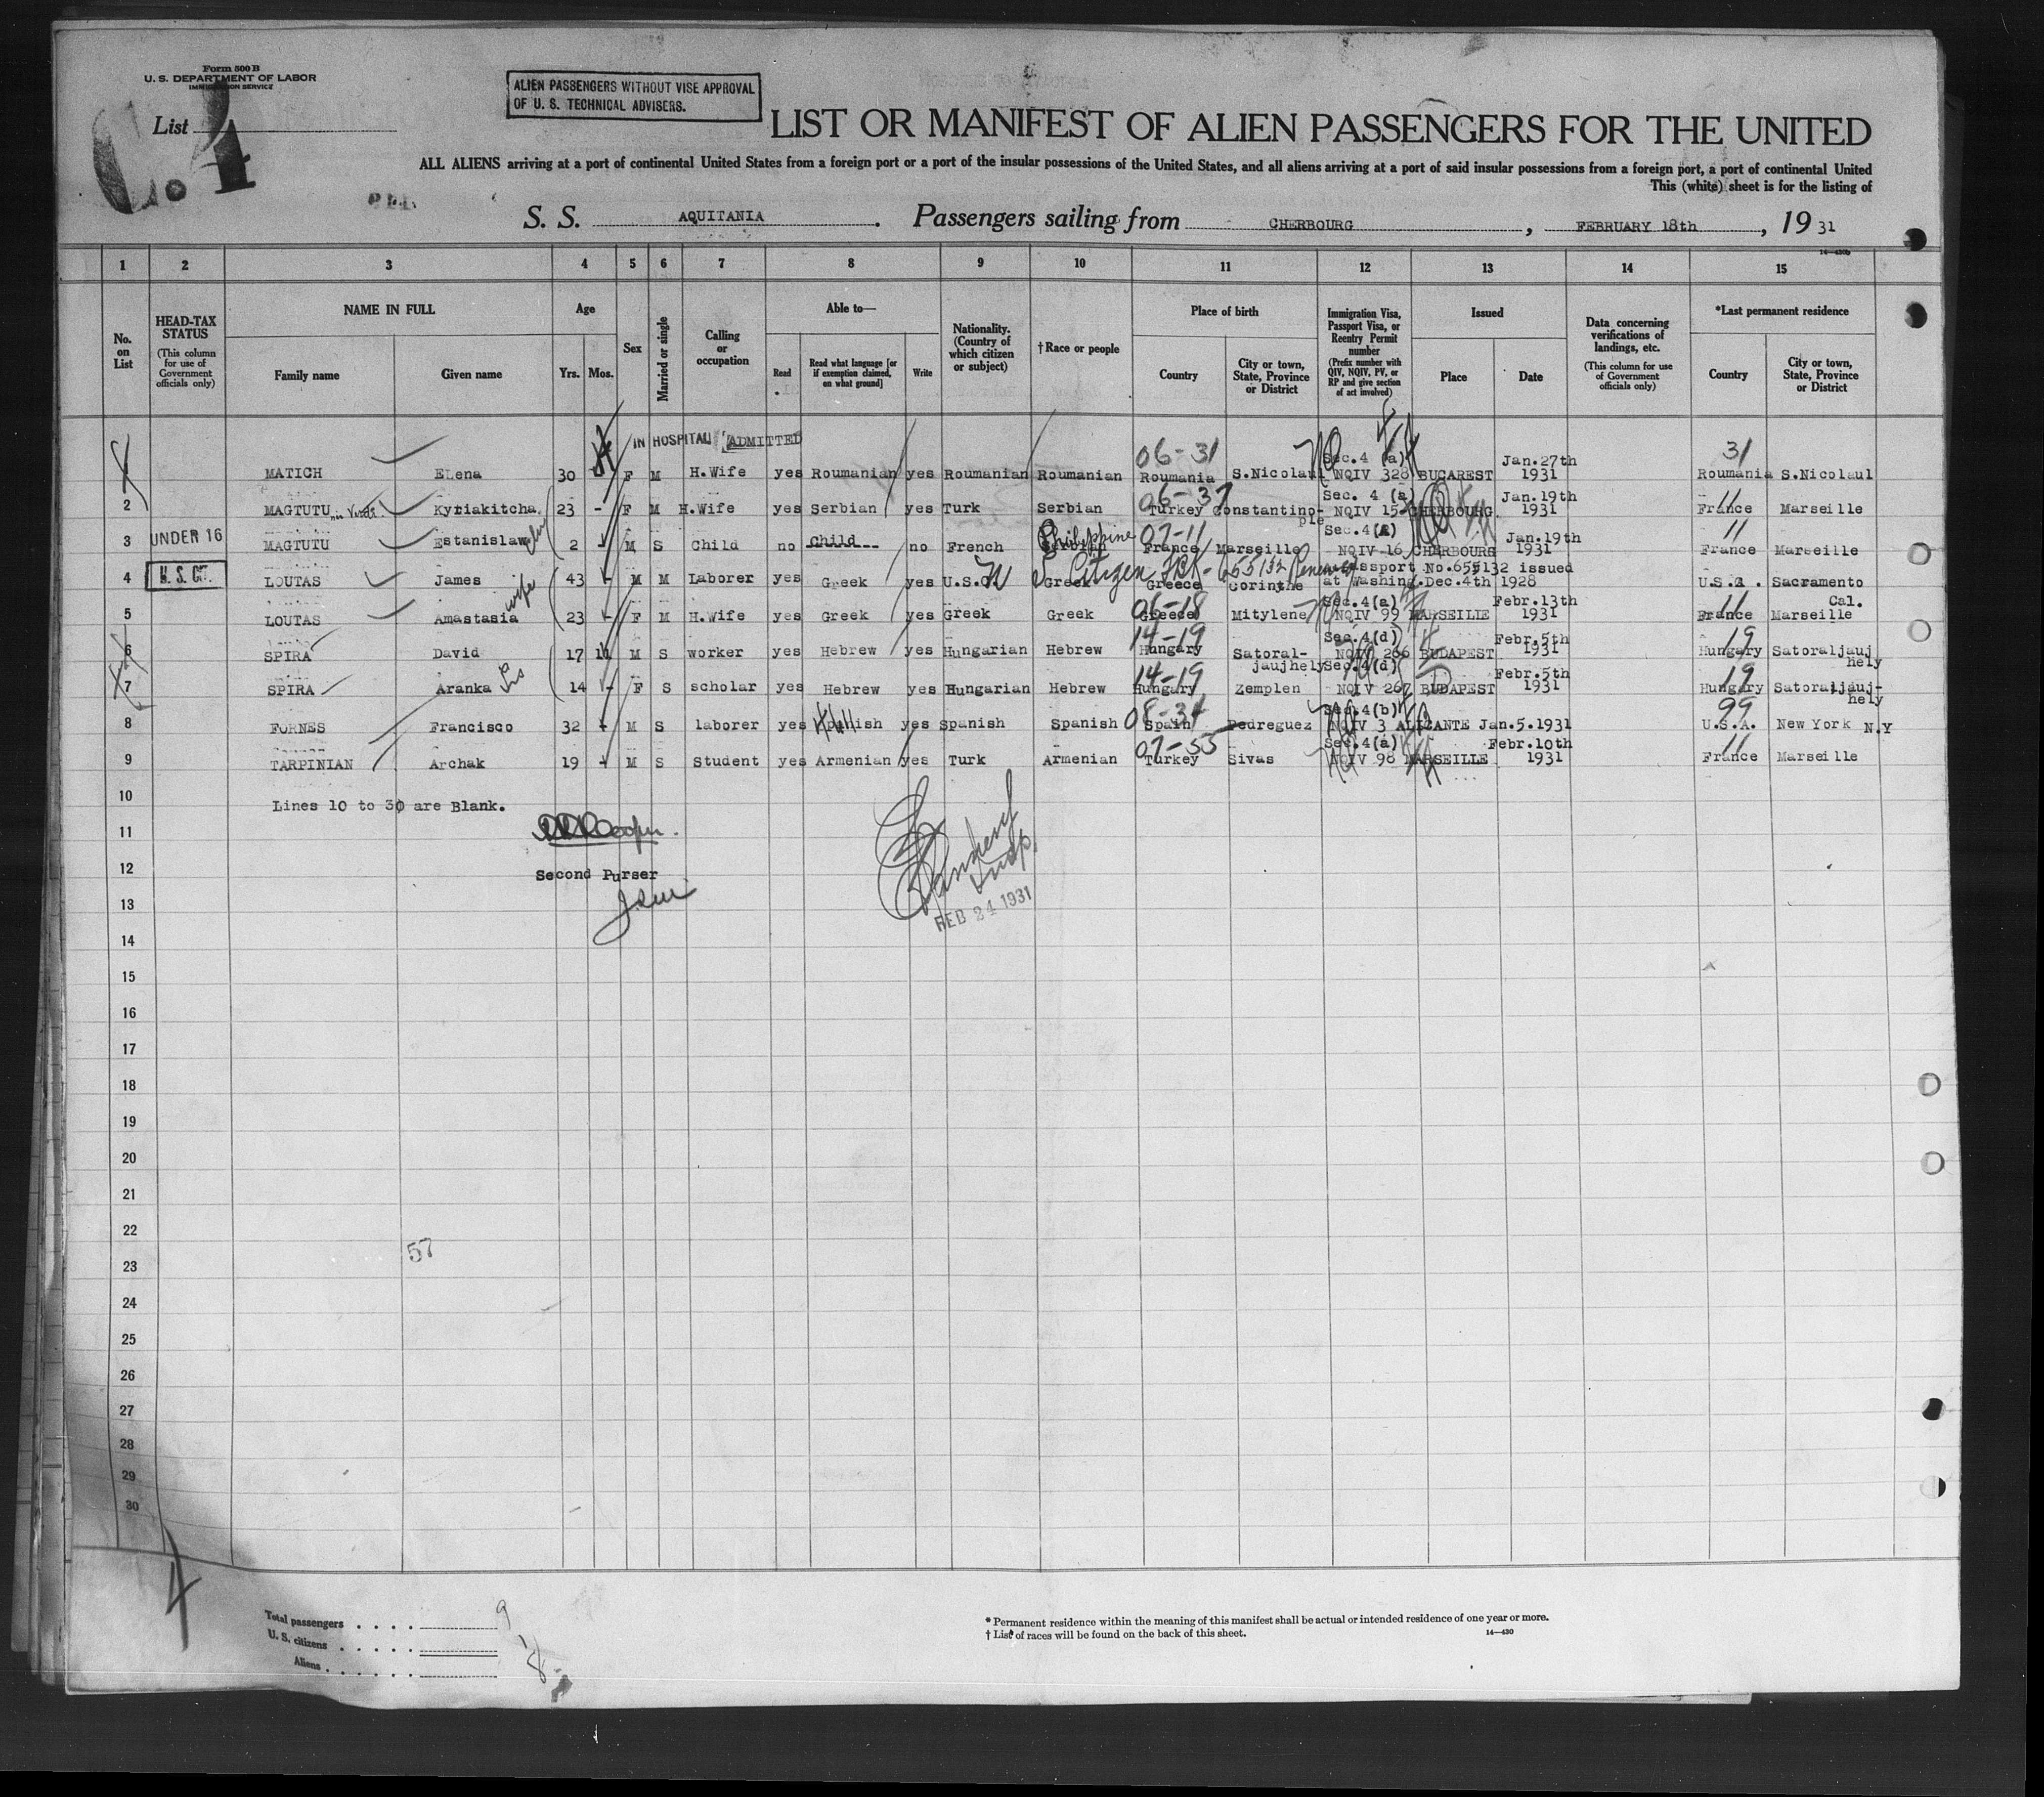 Form 500 B
U. S. DEPARTMENT OF LABOR
IMMIGRATION SERVICE
ALIEN PASSENGERS WITHOUT VISE APPROVAL
OF U. S. TECHNICAL ADVISERS.
List 4
LIST OR MANIFEST OF ALIEN PASSENGERS FOR THE UNITED
ALL ALIENS arriving at a port of continental United States from a foreign port or a port of the insular possessions of the United States, and all aliens arriving at a port of said insular possessions from a foreign port, a port of continental United
This (white) sheet is for the listing of
S. S. AQUITANIA. Passengers sailing from CHERBOURG, FEBRUARY 18th, 19 31
14—430b
1 2 3 4 5 6 7 8 9 10 11 12 13 14 15
No. on List
HEAD-TAX STATUS (This column for use of Government officials only)
NAME IN FULL
Family name
Given name
Age
Yrs. Mos.
Sex
Married or single
Calling or occupation
Able to—
Read
Read what language [or if exemption claimed, on what ground]
Write
Nationality. (Country of which citizen or subject)
† Race or people
Place of birth
Country
City or town, State, Province or District
Immigration Visa, Passport Visa, or Reentry Permit number (Prefix number with QIV, NQIV, PV, or RP and give section of act involved)
Issued
Place
Date
Data concerning verifications of landings, etc. (This column for use of Government officials only)
*Last permanent residence
Country
City or town, State, Province or District
IN HOSPITAL ADMITTED 06-31 Sec.4 (a) Jan.27th 31
MATICH ELena 30 F M H.Wife yes Roumanian yes Roumanian Roumanian Roumania S.Nicolaul NQIV 328 BUCAREST 1931 Roumania S.Nicolaul
06-37 Sec. 4 (a) Jan.19th 11
2 MAGTUTU Kyriakitcha 23 - F M H.Wife yes Serbian yes Turk Serbian Turkey Constantinople NQIV 15 CHERBOURG 1931 France Marseille
UNDER 16 Child Philippine 07-11 Sec.4(a) Jan.19th 11
3 MAGTUTU Estanislaw 2 - M S Child no no French Serbian France Marseille NQIV 16 CHERBOURG 1931 France Marseille
U. S. CIT. Citizen 655132 Renewed
4 LOUTAS James 43 - M M Laborer yes Greek yes U.S. Greek Greece Corinthe Passport No.655132 issued at Washing. Dec.4th 1928 U.S.a. Sacramento Cal.
wife 06-18 Sec.4(a) Febr.13th 11
5 LOUTAS Amastasia 23 - F M H.Wife yes Greek yes Greek Greek Greece Mitylene NQIV 99 MARSEILLE 1931 France Marseille
14-19 Sec.4(d) Febr.5th 19
6 SPIRA David 17 11 M S worker yes Hebrew yes Hungarian Hebrew Hungary Satoral-jaujhely NQIV 266 BUDAPEST 1931 Hungary Satoraljauj hely
Sis 14-19 Sec.4(d) Febr.5th 19
7 SPIRA Aranka 14 - F S scholar yes Hebrew yes Hungarian Hebrew Hungary Zemplen NQIV 267 BUDAPEST 1931 Hungary Satoraljauj-hely
08-34 Sec.4(b) 99
8 FORNES Francisco 32 - M S laborer yes Spanish yes Spanish Spanish Spain Pedreguez NQIV 3 ALICANTE Jan.5.1931 U.S.A. New York N.Y
07-55 Sec.4(a) Febr.10th 11
9 TARPINIAN Archak 19 - M S Student yes Armenian yes Turk Armenian Turkey Sivas NQIV 98 MARSEILLE 1931 France Marseille
10 Lines 10 to 30 are Blank.
11
12 Second Purser
13 FEB 24 1931
14
15
16
17
18
19
20
21
22
57
23
24
25
26
27
28
29
30
4
Total passengers . . . . 9
U. S. citizens . . . . . 1
Aliens . . . . . . 8
* Permanent residence within the meaning of this manifest shall be actual or intended residence of one year or more.
† List of races will be found on the back of this sheet.
14—430